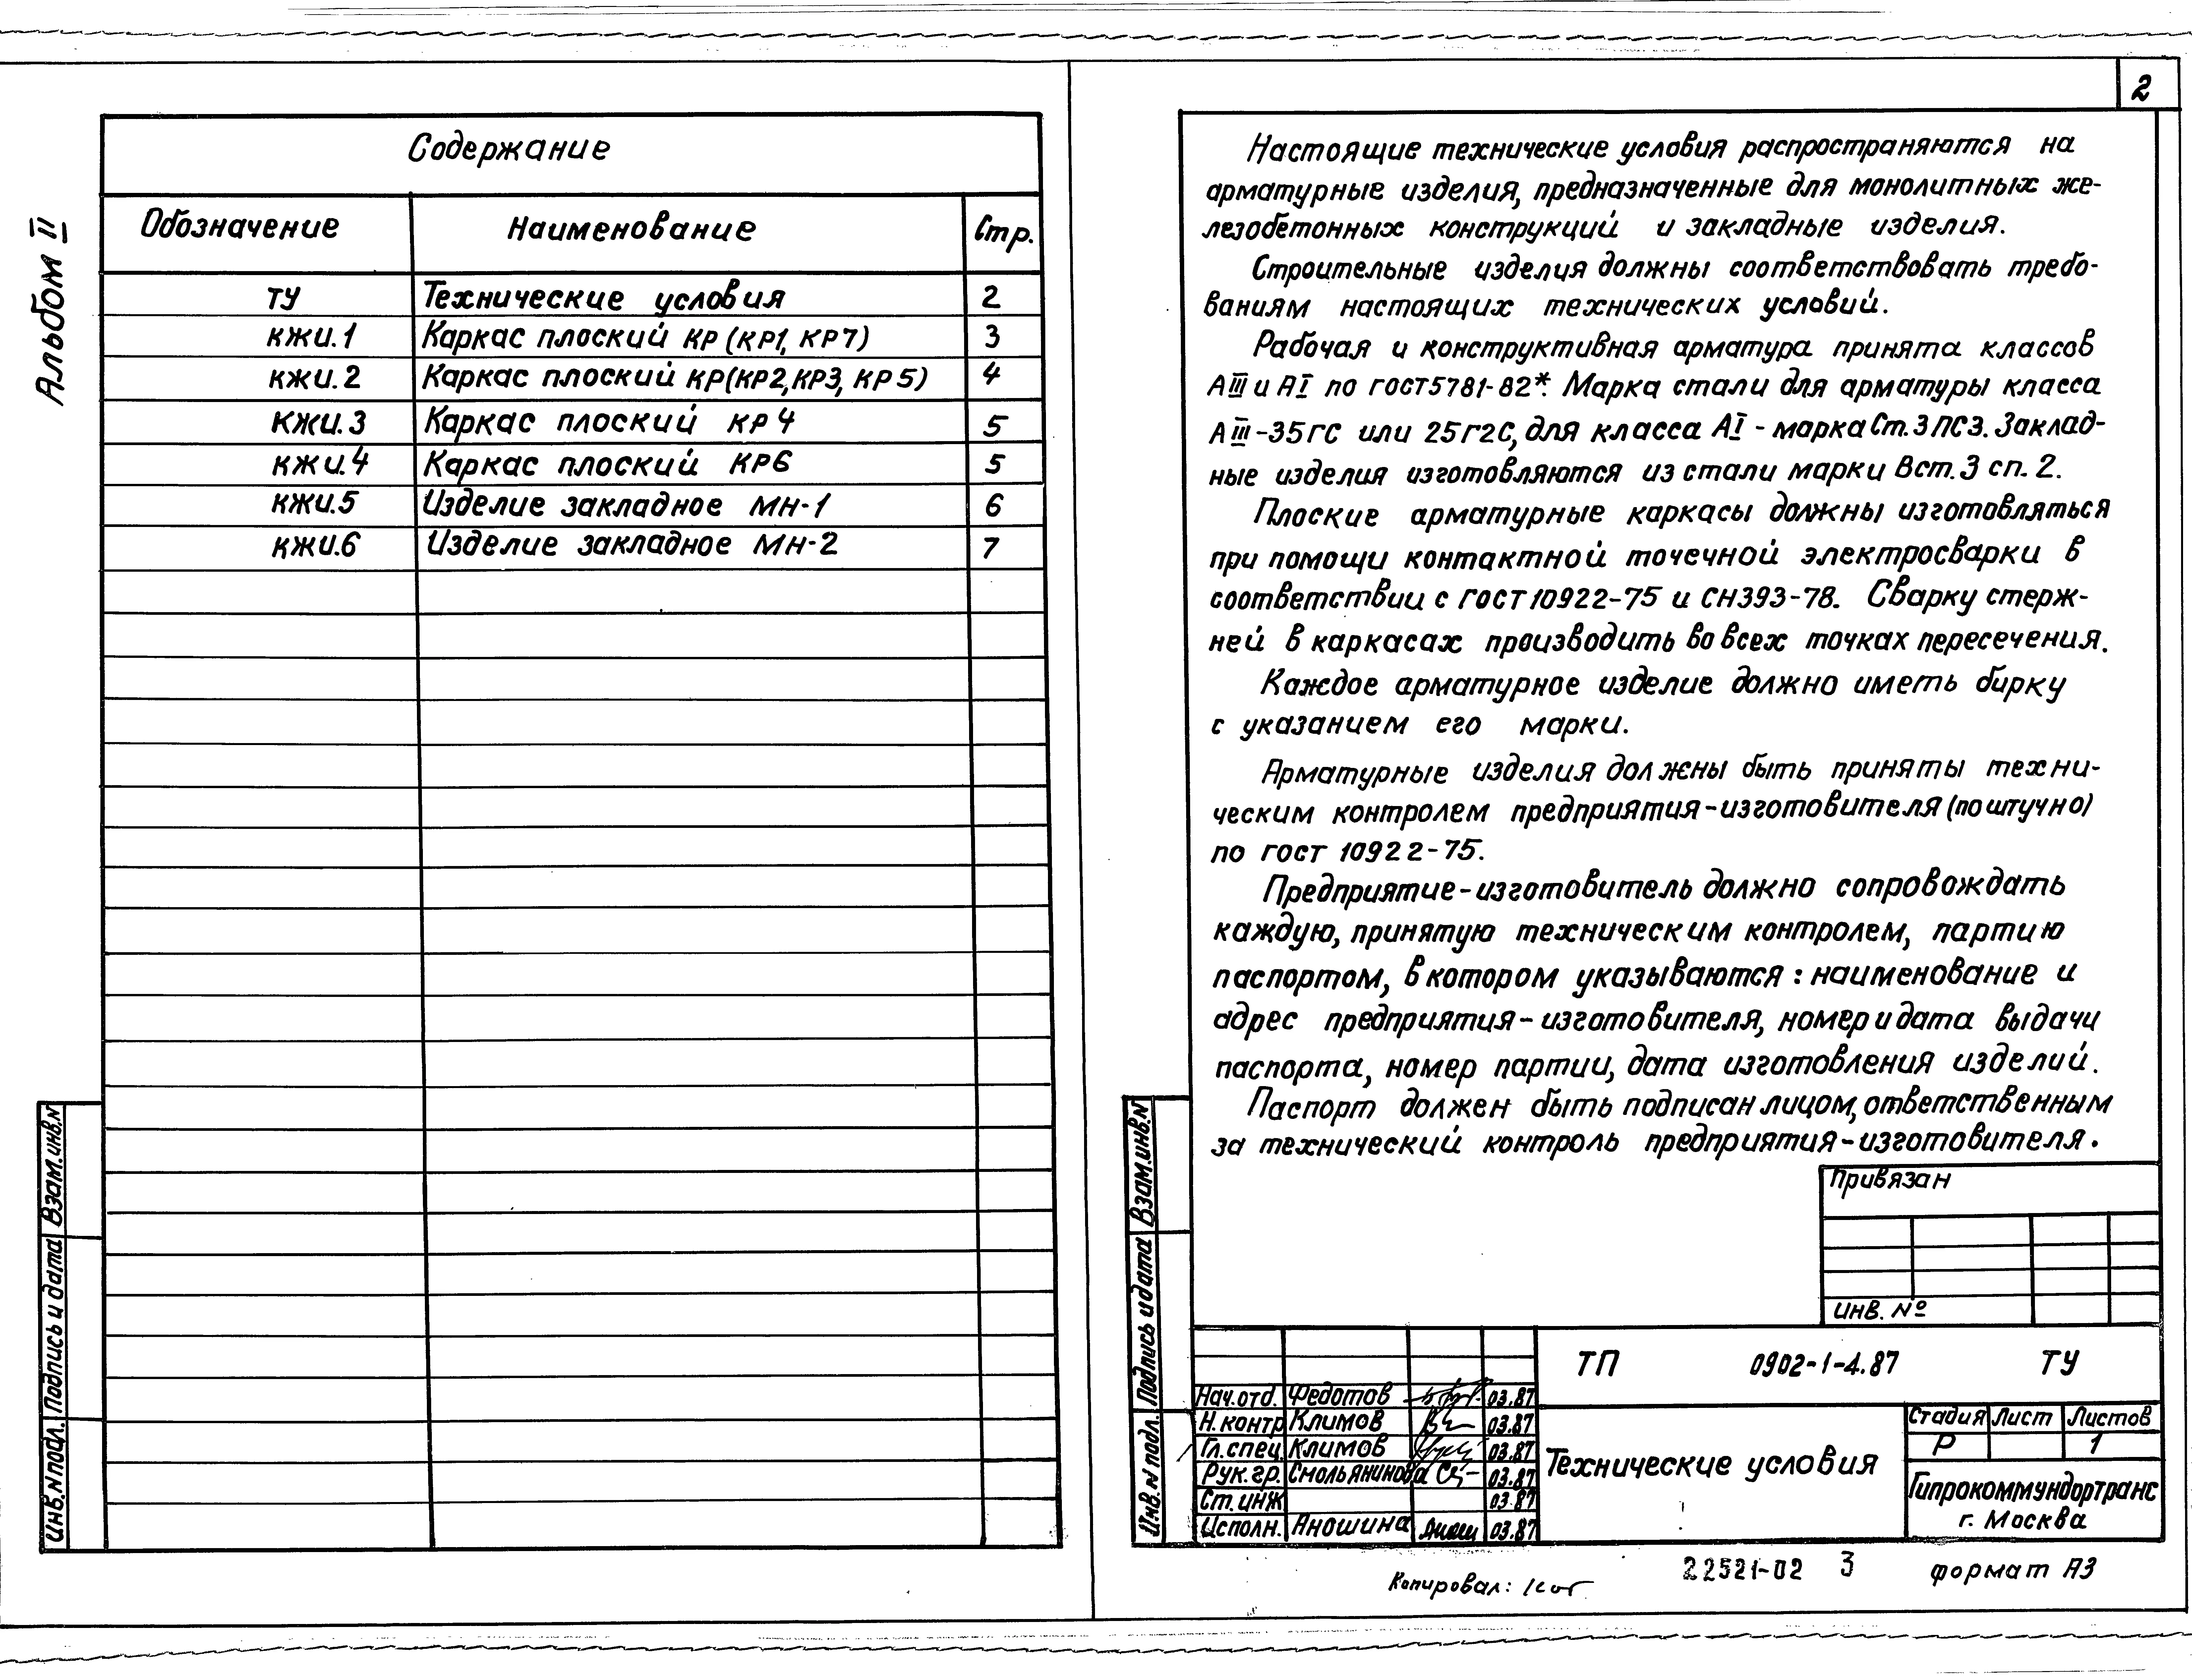 2
Альбом II
Содержание
Обозначение Наименование Стр.
ТУ Технические условия 2
КЖИ.1 Каркас плоский КР (КР1, КР7) 3
КЖИ.2 Каркас плоский КР(КР2,КР3, КР5) 4
КЖИ.3 Каркас плоский КР4 5
КЖИ.4 Каркас плоский КР6 5
КЖИ.5 Изделие закладное МН-1 6
КЖИ.6 Изделие закладное МН-2 7
Инв.N подл. Подпись и дата Взам.инв.N
Настоящие технические условия распространяются на
арматурные изделия, предназначенные для монолитных же-
лезобетонных конструкций и закладные изделия.
Строительные изделия должны соответствовать требо-
ваниям настоящих технических условий.
Рабочая и конструктивная арматура принята классов
АIII и АI по ГОСТ5781-82*. Марка стали для арматуры класса
АIII-35ГС или 25Г2С, для класса АI - марка Ст.3ПС3. Заклад-
ные изделия изготовляются из стали марки Вст.3 сп.2.
Плоские арматурные каркасы должны изготовляться
при помощи контактной точечной электросварки в
соответствии с ГОСТ 10922-75 и СН393-78. Сварку стерж-
ней в каркасах производить во всех точках пересечения.
Каждое арматурное изделие должно иметь бирку
с указанием его марки.
Арматурные изделия должны быть приняты техни-
ческим контролем предприятия-изготовителя (поштучно)
по ГОСТ 10922-75.
Предприятие-изготовитель должно сопровождать
каждую, принятую техническим контролем, партию
паспортом, в котором указываются: наименование и
адрес предприятия-изготовителя, номер и дата выдачи
паспорта, номер партии, дата изготовления изделий.
Паспорт должен быть подписан лицом, ответственным
за технический контроль предприятия-изготовителя.
Инв.N подл. Подпись и дата Взам.инв.N
Привязан
Инв. №
ТП 0902-1-4.87 ТУ
Нач.отд. Федотов 03.87
Н.контр Климов 03.87
Гл.спец Климов 03.87
Рук.гр. Смольянинова 03.87
Ст.инж 03.87
Исполн. Аношина 03.87
Технические условия
Стадия Лист Листов
Р 1
Гипрокоммундортранс
г. Москва
Копировал:
22521-02 3
формат А3